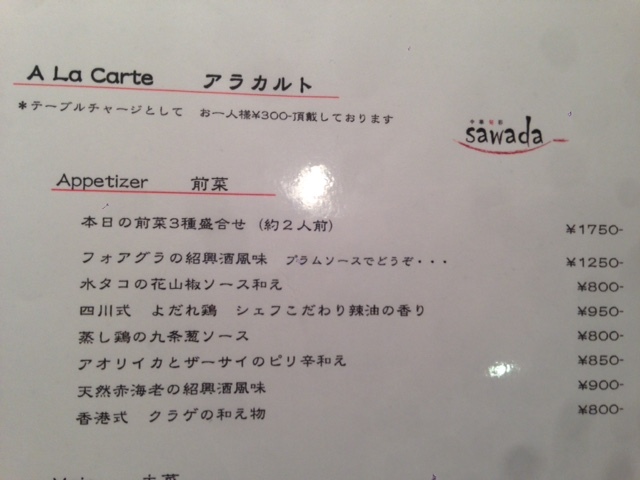 A La Carte アラカルト
*テーブルチャージとして お一人様¥300-頂戴しております
sawada
Appetizer 前菜
本日の前菜3種盛合せ (約2人前) ¥1750-
フォアグラの紹興酒風味 プラムソースでどうぞ・・・ ¥1250-
水タコの花山椒ソース和え ¥800-
四川式 よだれ鶏 シェフこだわり辣油の香り ¥950-
蒸し鶏の九条葱ソース ¥800-
アオリイカとザーサイのピリ辛和え ¥850-
天然赤海老の紹興酒風味 ¥900-
香港式 クラゲの和え物 ¥800-